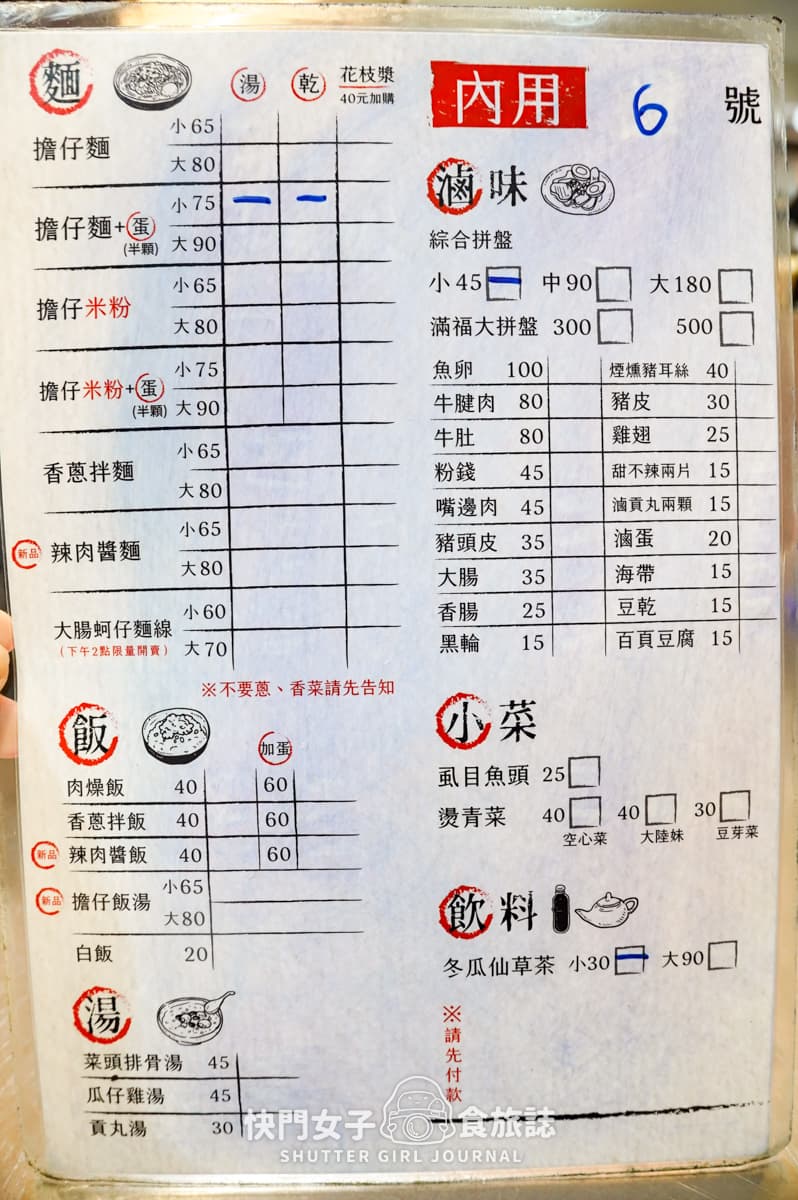 麵 湯 乾 花枝漿
40元加購
擔仔麵 小65
大80
擔仔麵+蛋 小75 一 一
(半顆) 大90
擔仔米粉 小65
大80
擔仔米粉+蛋 小75
(半顆) 大90
香蔥拌麵 小65
大80
新品 辣肉醬麵 小65
大80
大腸蚵仔麵線 小60
(下午2點限量開賣) 大70
※不要蔥、香菜請先告知
飯 加蛋
肉燥飯 40 60
香蔥拌飯 40 60
新品 辣肉醬飯 40 60
新品 擔仔飯湯 小65
大80
白飯 20
湯
菜頭排骨湯 45
瓜仔雞湯 45
貢丸湯 30
內用 6 號
滷味
綜合拼盤
小45 一 中90 大180
滿福大拼盤 300 500
魚卵 100 煙燻豬耳絲 40
牛腱肉 80 豬皮 30
牛肚 80 雞翅 25
粉錢 45 甜不辣兩片 15
嘴邊肉 45 滷貢丸兩顆 15
豬頭皮 35 滷蛋 20
大腸 35 海帶 15
香腸 25 豆乾 15
黑輪 15 百頁豆腐 15
小菜
虱目魚頭 25
燙青菜 40 40 30
空心菜 大陸妹 豆芽菜
飲料
冬瓜仙草茶 小30 一 大90
※請先付款
快門女子 食旅誌
SHUTTER GIRL JOURNAL